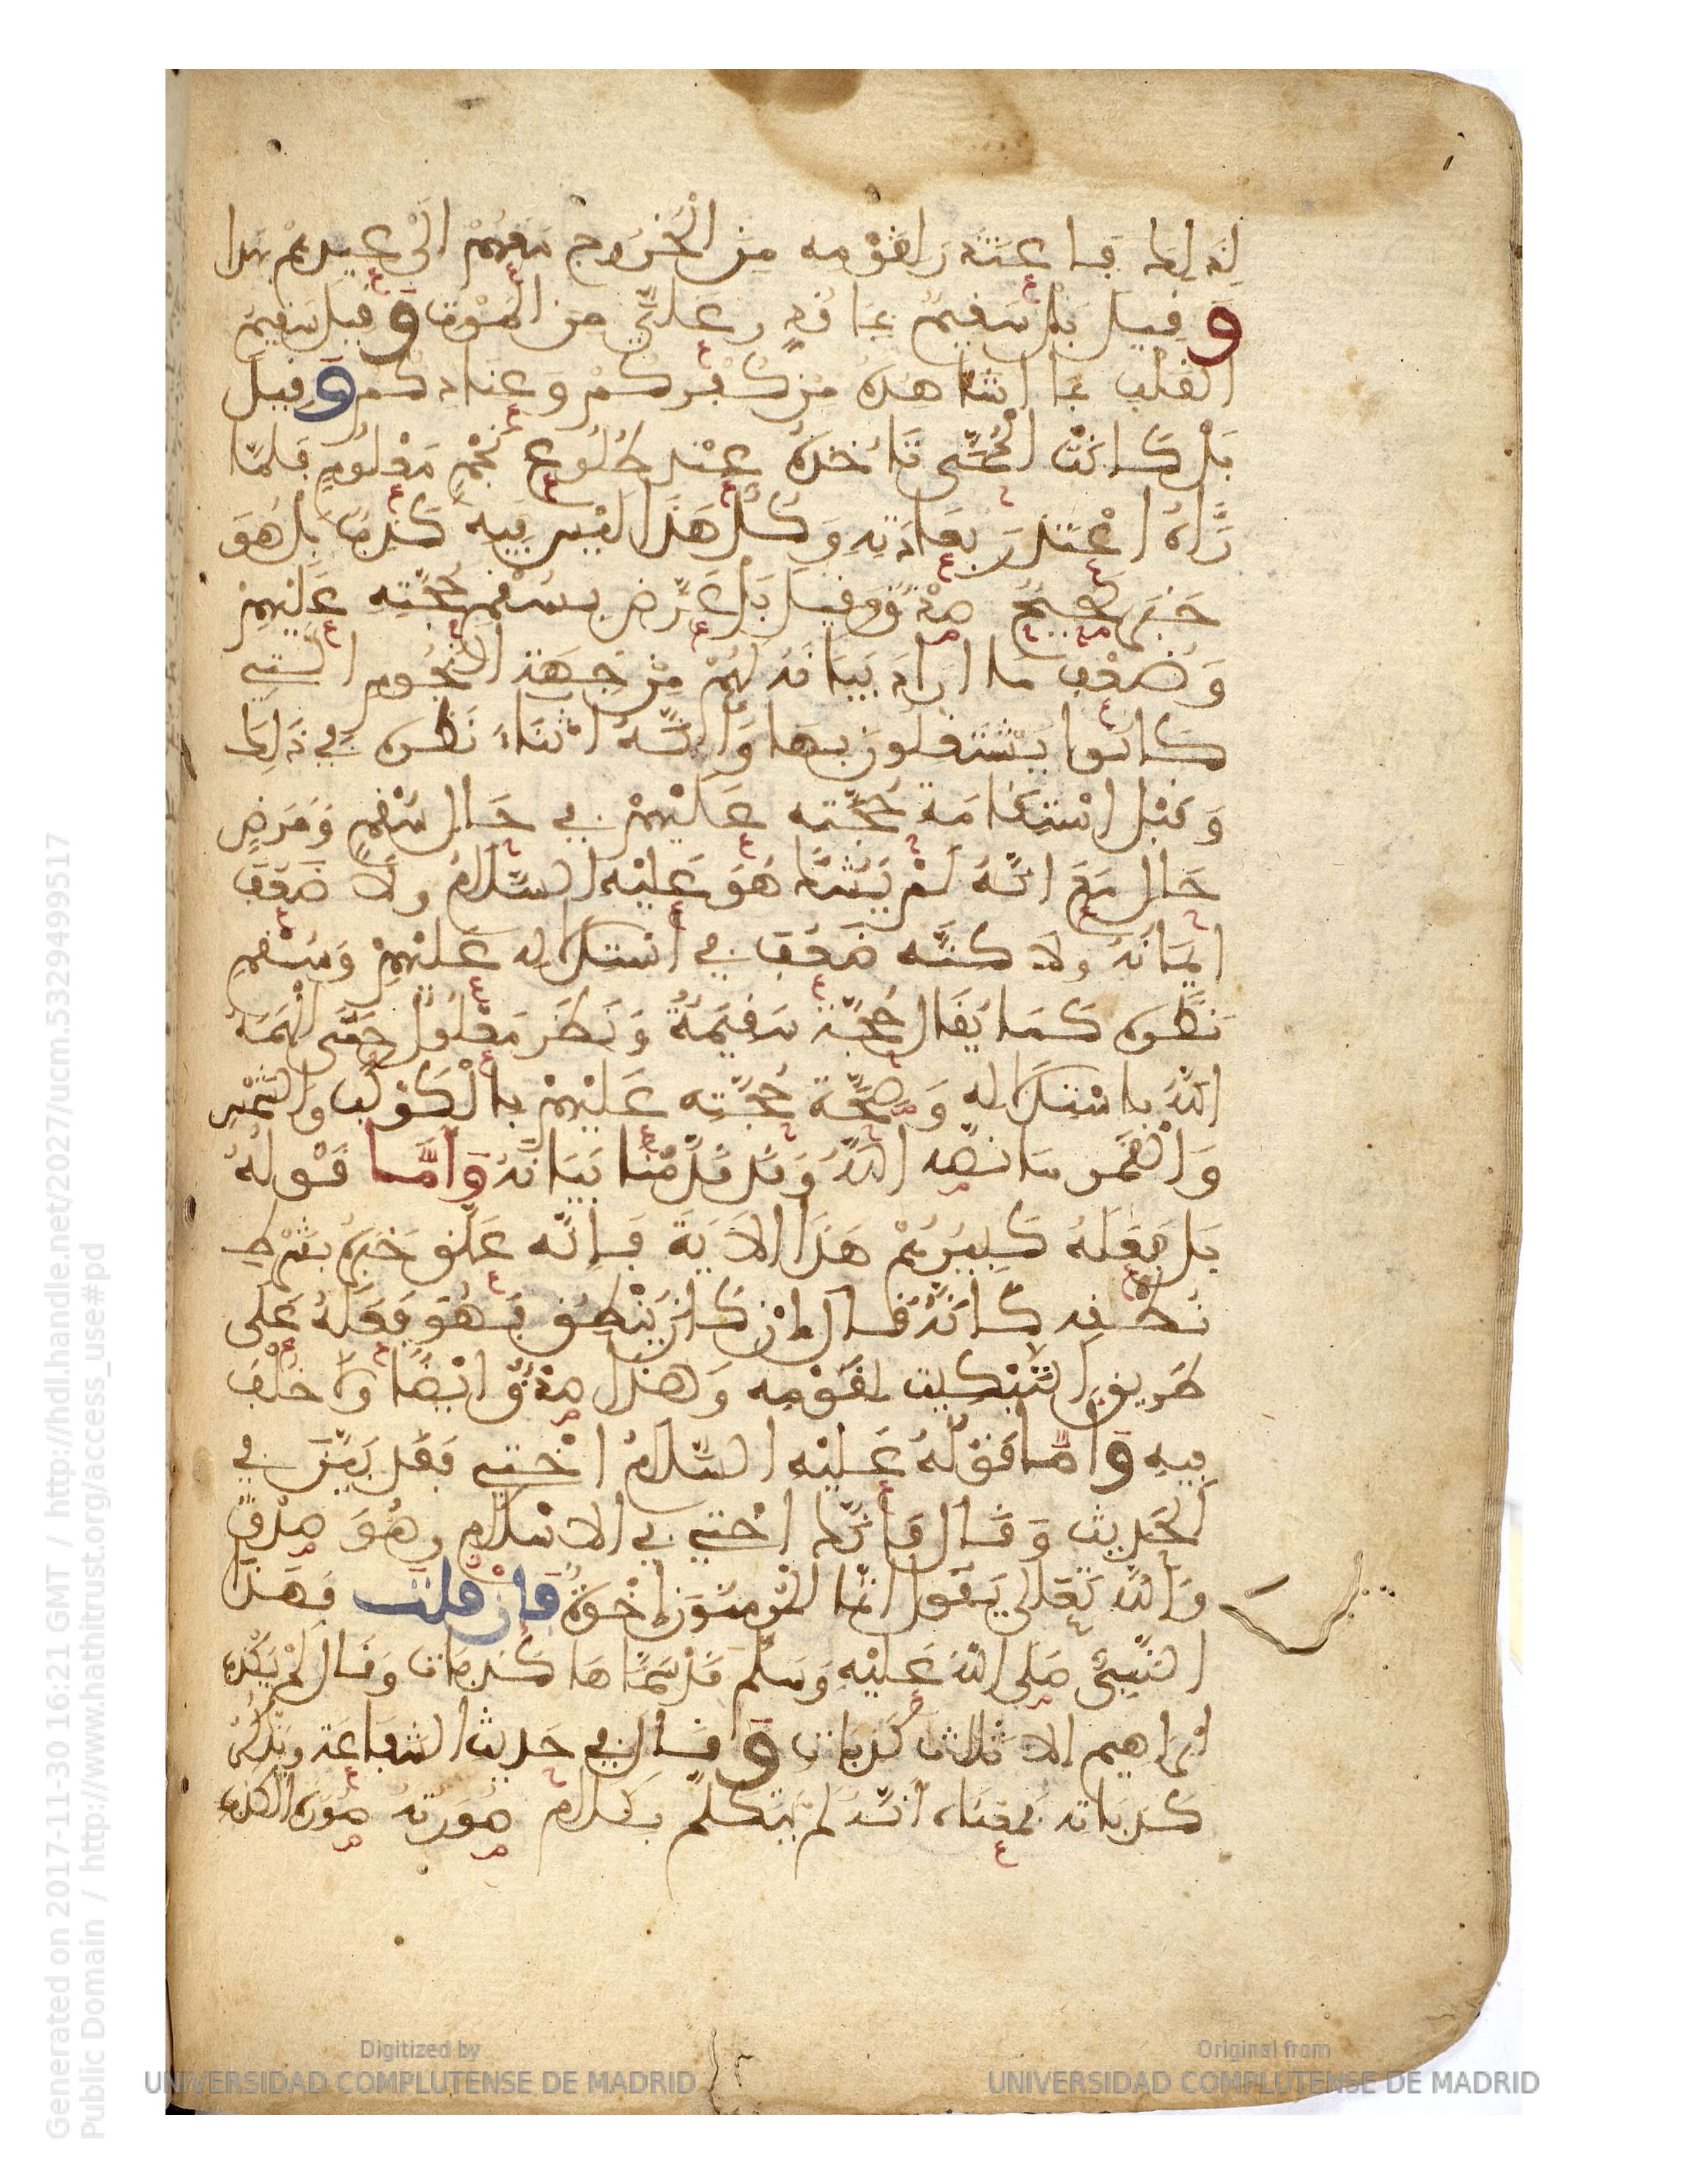 لذلك فاعتذر لقومه من الخروج معهم الى عيدهم بهذا
وقيل بل سقيم بما قدر علي من الموت وقيل سقيم
القلب بما اشاهده من كفركم وعنادكم وقيل
بل كانت الحمى تاخذه عند طلوع نجم معلوم فلما
رءاه اعتذر بعادته وكل هذا ليس فيه كذب بل هو
خبر صحيح صدق وقيل بل عرض بسقم حجته عليهم
وضعف ما اراد بيانه لهم من جهة النجوم التي
كانوا يشتغلون بها وانه اثناء نظره في ذلك
وقبل استقامة حجته عليهم في حال سقم ومرض
حال مع انه لم يشك هو عليه السلام ولا ضعف
ايمانه ولاكنه ضعف في استدلاله عليهم وسقم
نظره كما يقال حجة سقيمة ونظر معلول حتى الهمه
الله باستدلاله وصحة حجته عليهم بالكوكب والشمس
والقمر ما نصه الله وقد قدمنا بيانه واما قوله
بل فعله كبيرهم هذا الاية فانه علق خبره بشرط
نطقه كانه قال ان كان ينطق فهو فعله على
طريق التبكيت لقومه وهذا صدق ايضا ولا خلف
فيه واما قوله عليه السلام اختي فقد بين في
الحديث وقال فانك اختي في الاسلام وهو صدق
والله تعلى يقول انما المومنون إخوة فان قلت فهذا
النبيء صلى الله عليه وسلم قد سماها كذبات وقال لم يكذب
ابراهيم الا ثلاث كذبات وقال في حديث الشفاعة ويذكر
كذباته فمعناه انه لم يتكلم بكلام صورته صورة الكذب
Generated on 2017-11-30 16:21 GMT / http://hdl.handle.net/2027/ucm.5329499517
Public Domain / http://www.hathitrust.org/access_use#pd
Digitized by
UNIVERSIDAD COMPLUTENSE DE MADRID
Original from
UNIVERSIDAD COMPLUTENSE DE MADRID